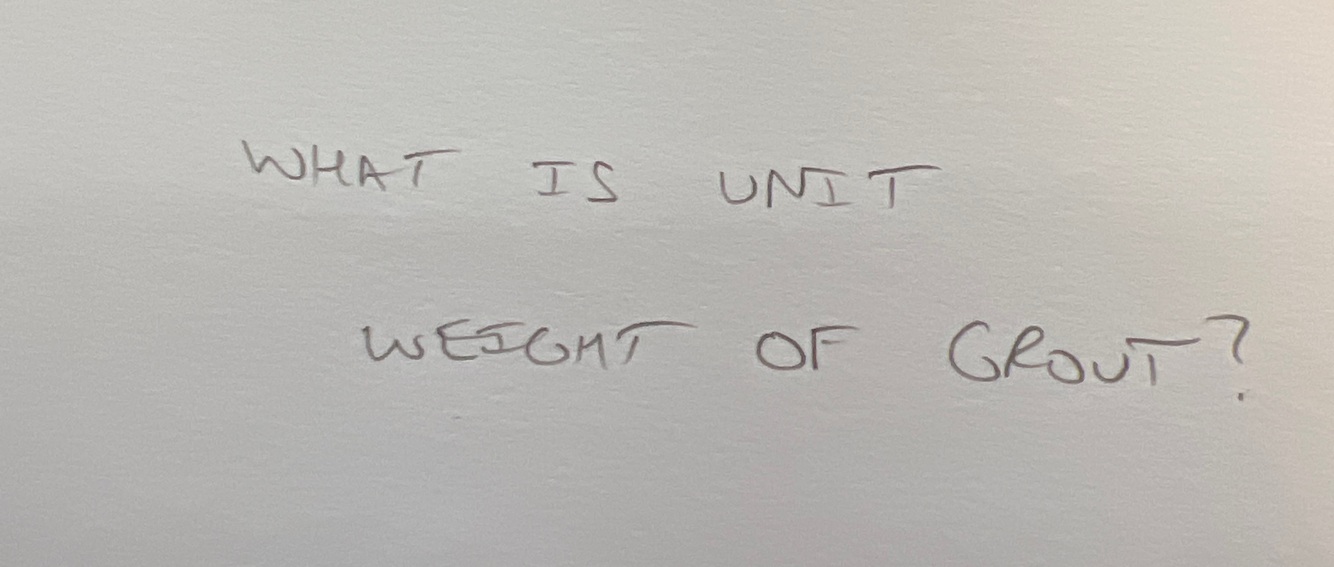 WHAT IS UNIT
WEIGHT OF GROUT?